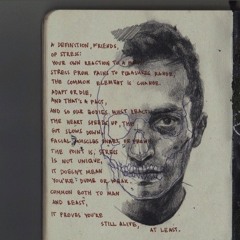 A DEFINITION, FRIENDS,
OF STRESS:
YOUR OWN REACTION TO A
STRESS FROM PAINS TO PLEASURES RANGE,
THE COMMON ELEMENT IS CHANGE.
ADAPT OR DIE,
AND THAT'S A FACT,
AND SO OUR BODIES MUST REACT
THE HEART SPEEDS UP, THE
GUT SLOWS DOWN,
FACIAL MUSCLES OR FROWN
THE POINT IS, STRESS
IS NOT UNIQUE,
IT DOESN'T MEAN
YOU'RE DUMB OR WEAK.
COMMON BOTH TO MAN
AND BEAST,
IT PROVES YOU'RE
STILL ALIVE,
AT LEAST.